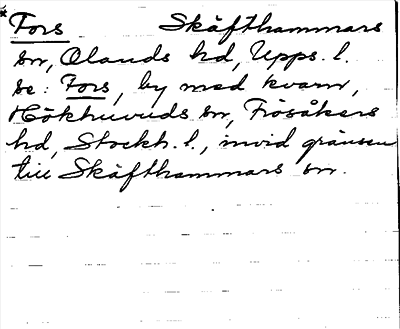 Fors Skäfthammars
sn, Olands hd, Upps. l.
se: Fors, by med kvarn,
Hökhuvuds sn, Frösåkers
hd, Stockh. l., invid gränsen
till Skäfthammars sn.